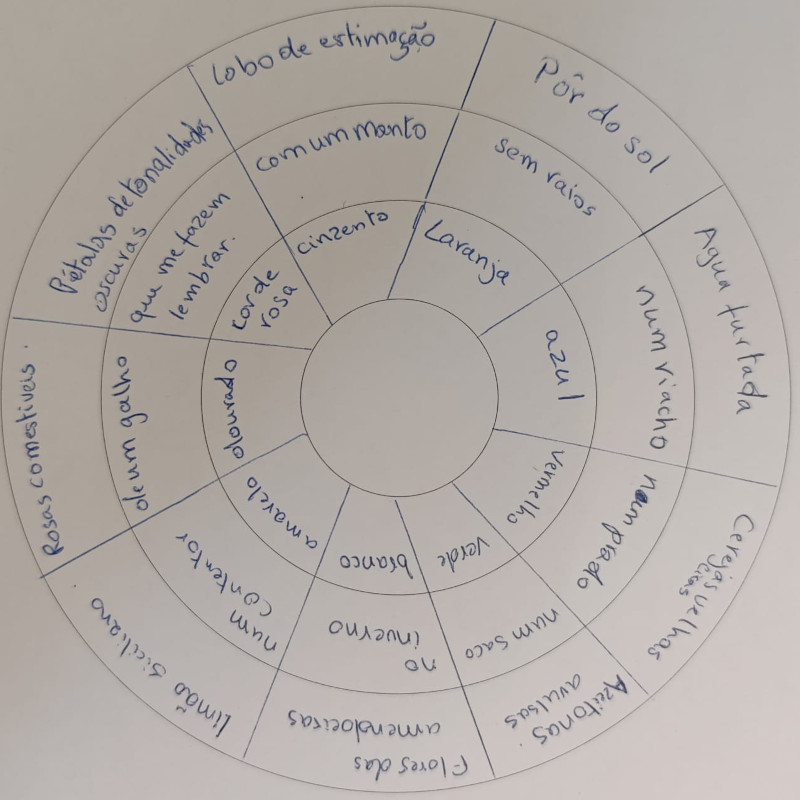 Lobo de estimação
com um manto
cinzento
Pôr do sol
sem raios
Laranja
Agua furtada
num riacho
azul
Cerejas velhas
num prado
vermelho
Azeitonas
avulsas
num saco
verde
Flores das
amendoeiras
no
inverno
branco
limão siciliano
num
contentor
amarelo
Rosas comestiveis.
de um galho
dourado
Pétalas de tonalidades
escuras
que me fazem
lembrar.
cor de
rosa